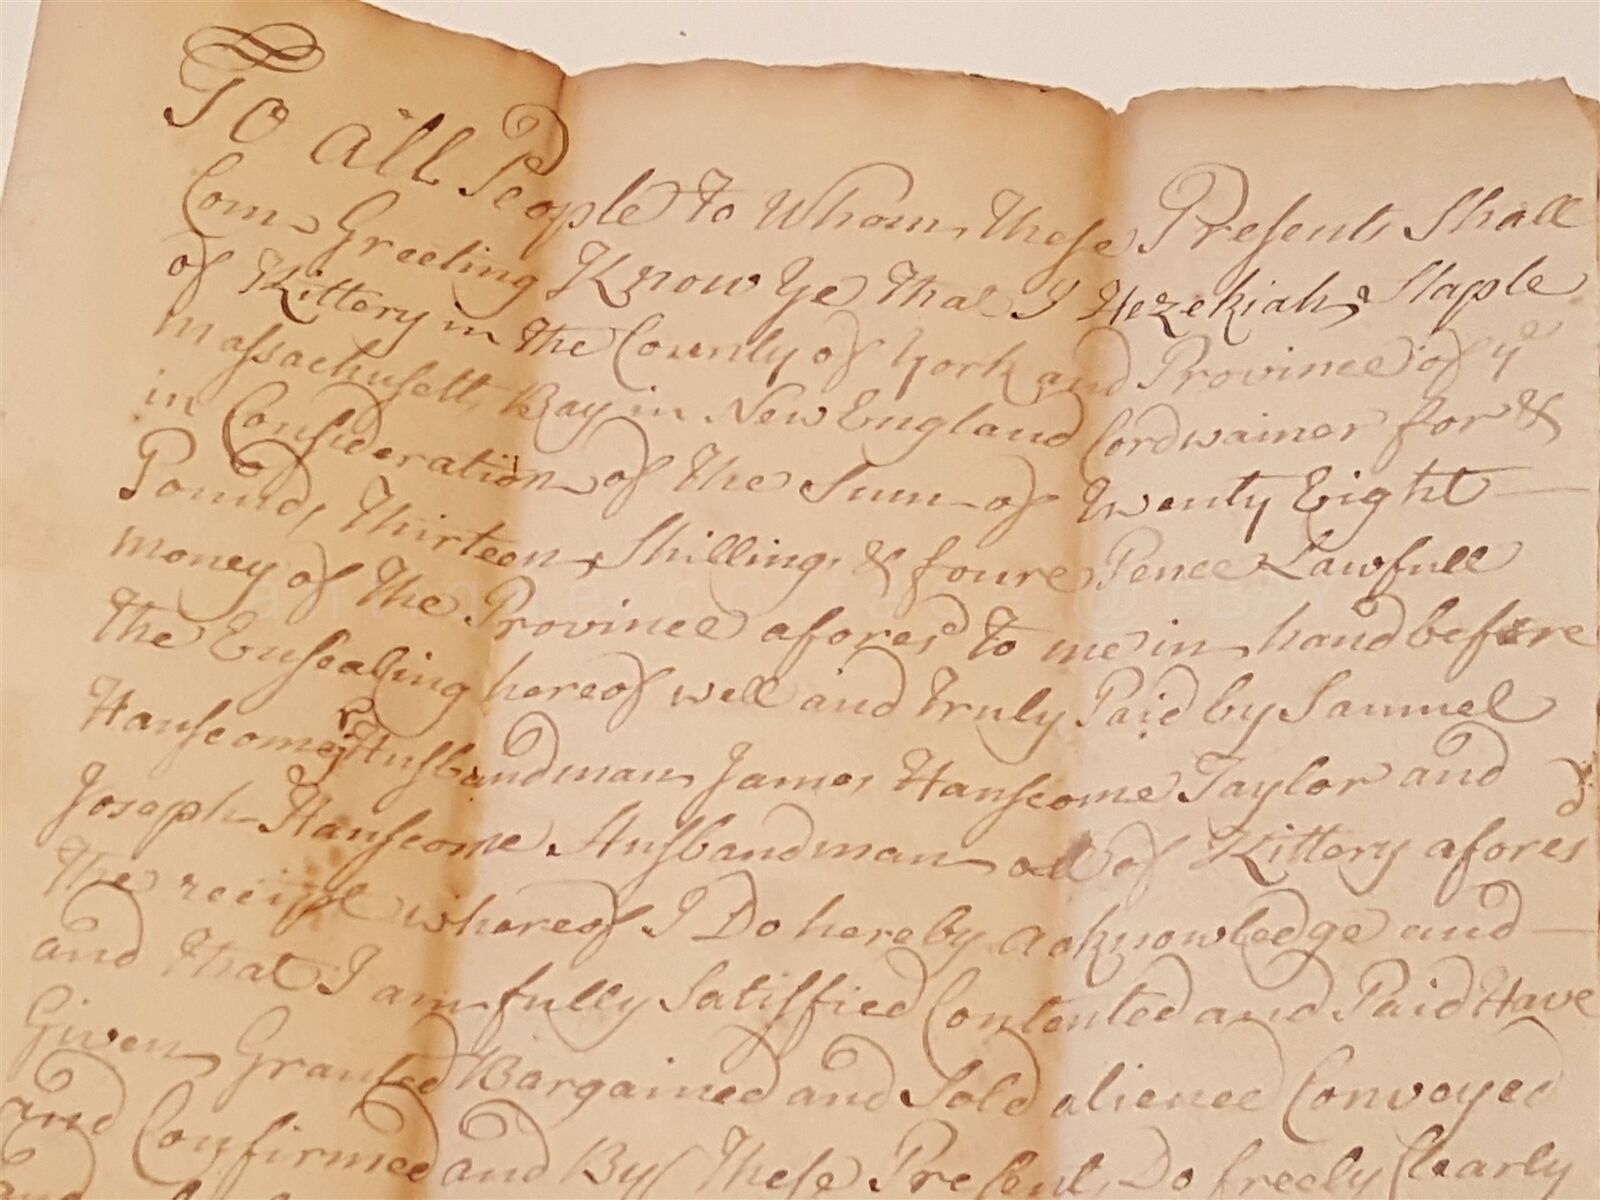 To all People to Whom These Presents Shall
Com Greeting Know Ye That I Hezekiah Staple
of Kittery in the County of York and Province of ye
Massachusetts Bay in New England Cordwainer for &
in Consideration of the Sum of Twenty Eight
Pounds Thirteen Shillings & foure Pence Lawfull
money of the Province aforesd to me in hand before
the Ensealing hereof well and truly Paid by Samuel
Hanscome Husbandman James Hanscome Taylor and
Joseph Hanscome Husbandman all of Kittery aforesd
The receipt whereof I Do hereby acknowledge and
and that I am fully Satisfied Contented and Paid Have
Given Granted Bargained and Sold aliened Conveyed
and Confirmed and By These Presents Do freely Clearly
and